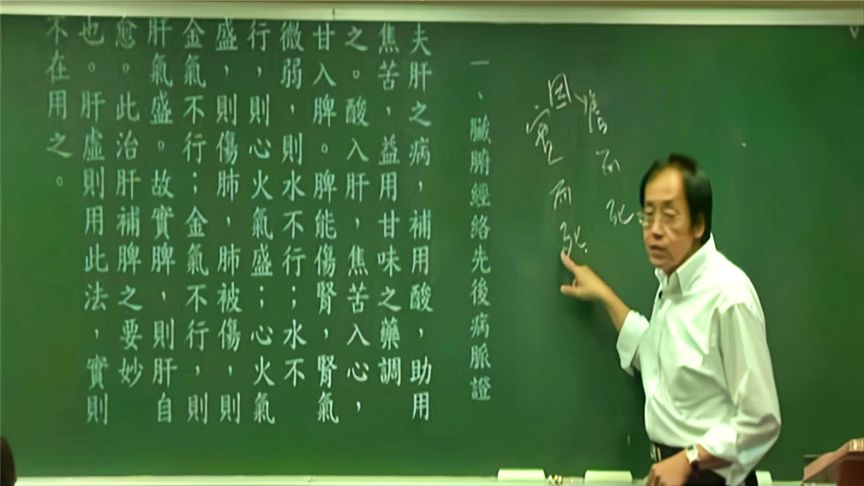 而死
因
而死
一、臟腑經絡先後病脈證
夫肝之病，補用酸，助用
焦苦，益用甘味之藥調
之。酸入肝，焦苦入心，
甘入脾。脾能傷腎，腎氣
微弱，則水不行；水不
行，則心火氣盛；心火氣
盛，則傷肺，肺被傷，則
金氣不行；金氣不行，則
肝氣盛。故實脾，則肝自
愈。此治肝補脾之要妙
也。肝虛則用此法，實則
不在用之。